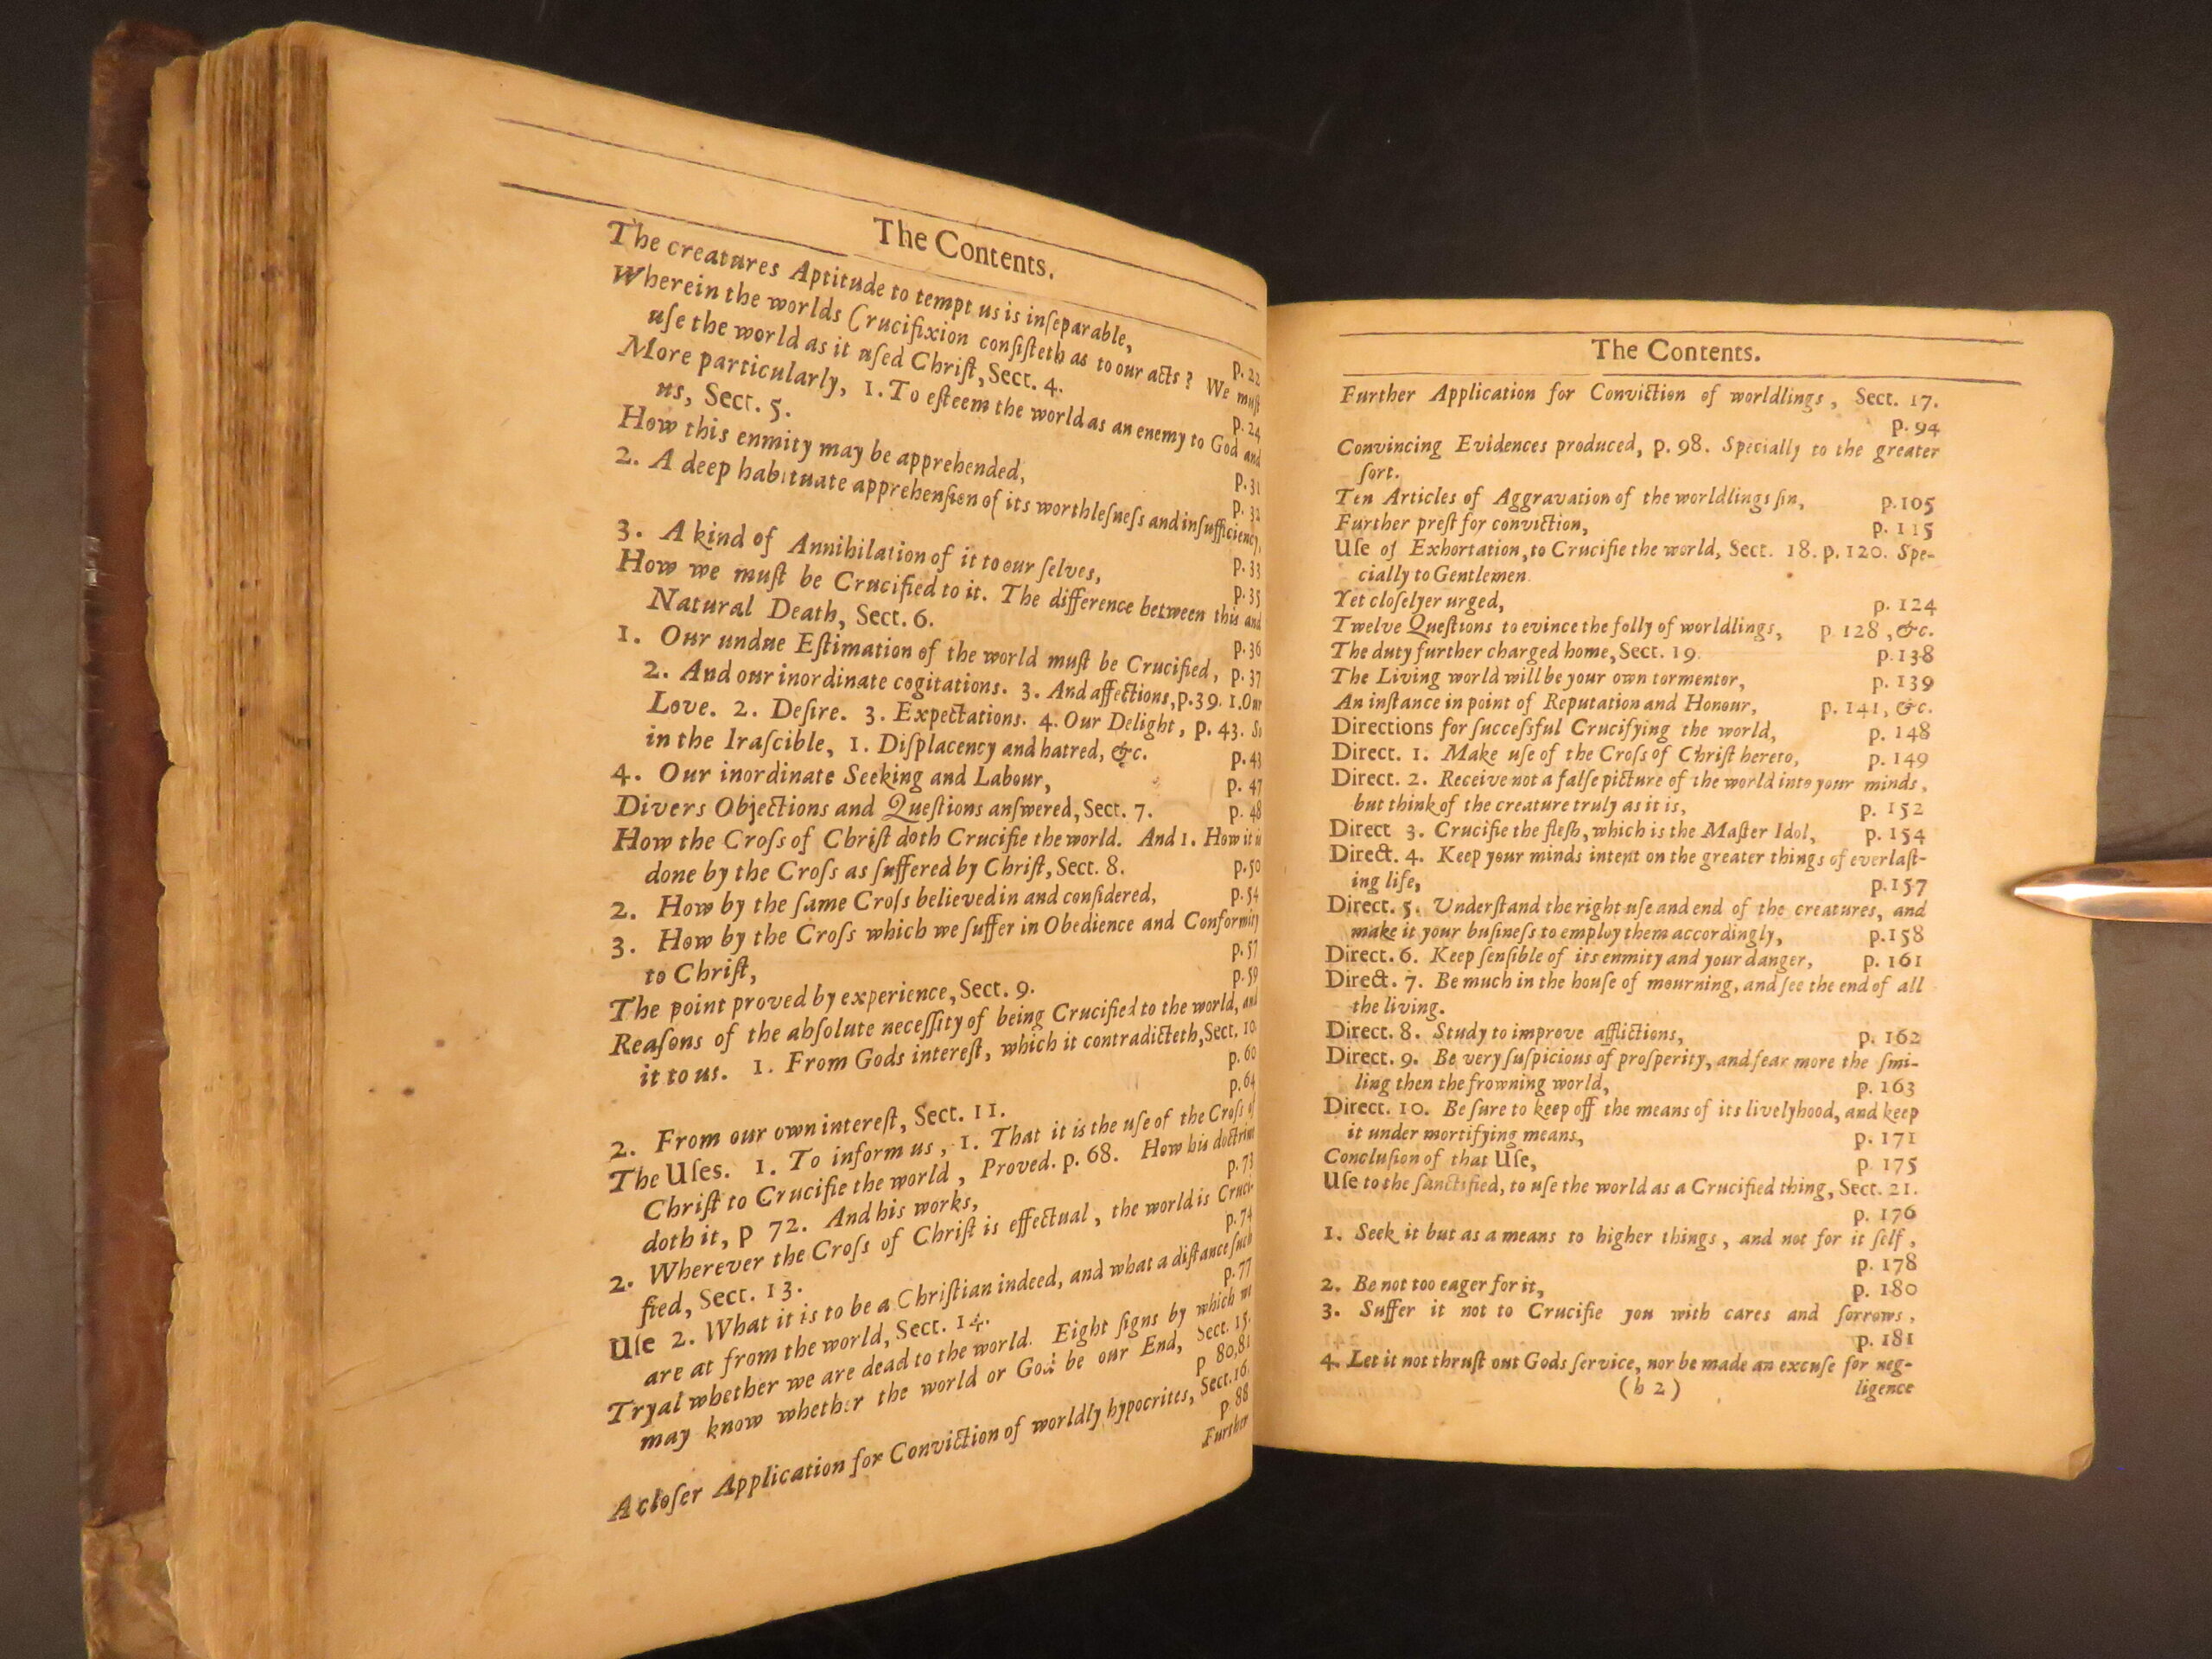 The Contents.
The creatures Aptitude to tempt us is inſeparable,
p. 22
Wherein the worlds Crucifixion conſiſteth as to our acts? We muſt
uſe the world as it uſed Chriſt, Sect. 4.
p. 24
More particularly, 1. To eſteem the world as an enemy to God and
us, Sect. 5.
p. 31
How this enmity may be apprehended,
p. 32
2. A deep habituate apprehenſion of its worthleſneſs and inſufficiency,
p. 33
3. A kind of Annihilation of it to our ſelves,
p. 35
How we muſt be Crucified to it. The difference between this and
Natural Death, Sect. 6.
p. 36
1. Our undue Eſtimation of the world muſt be Crucified, p. 37
2. And our inordinate cogitations. 3. And affections, p. 39. 1. Our
Love. 2. Deſire. 3. Expectations. 4. Our Delight, p. 43. So
in the Iraſcible, 1. Diſplacency and hatred, &c. p. 43
4. Our inordinate Seeking and Labour, p. 47
Divers Objections and Queſtions anſwered, Sect. 7. p. 48
How the Croſs of Chriſt doth Crucifie the world. And 1. How it is
done by the Croſs as ſuffered by Chriſt, Sect. 8. p. 50
2. How by the ſame Croſs believed in and conſidered, p. 54
3. How by the Croſs which we ſuffer in Obedience and Conformity
to Chriſt, p. 57
The point proved by experience, Sect. 9. p. 59
Reaſons of the abſolute neceſſity of being Crucified to the world, and
it to us. 1. From Gods intereſt, which it contradicteth, Sect. 10.
p. 60
2. From our own intereſt, Sect. 11. p. 64
The Uſes. 1. To inform us, 1. That it is the uſe of the Croſs of
Chriſt to Crucifie the world, Proved. p. 68. How his doctrine
doth it, p 72. And his works, p. 73
2. Wherever the Croſs of Chriſt is effectual, the world is Cruci-
fied, Sect. 13. p. 74
Uſe 2. What it is to be a Chriſtian indeed, and what a diſtance ſuch
are at from the world, Sect. 14. p. 77
Tryal whether we are dead to the world. Eight ſigns by which we
may know whether the world or God be our End, Sect. 15.
p 80,81
A cloſer Application for Conviction of worldly hypocrites, Sect. 16.
p. 88
Further
The Contents.
Further Application for Conviction of worldlings, Sect. 17.
p. 94
Convincing Evidences produced, p. 98. Specially to the greater
ſort.
Ten Articles of Aggravation of the worldlings ſin, p. 105
Further preſt for conviction, p. 115
Uſe of Exhortation, to Crucifie the world, Sect. 18. p. 120. Spe-
cially to Gentlemen.
Yet cloſelyer urged, p. 124
Twelve Queſtions to evince the folly of worldlings, p 128, &c.
The duty further charged home, Sect. 19. p. 138
The Living world will be your own tormentor, p. 139
An inſtance in point of Reputation and Honour, p. 141, &c.
Directions for ſucceſsful Crucifying the world, p. 148
Direct. 1. Make uſe of the Croſs of Chriſt hereto, p. 149
Direct. 2. Receive not a falſe picture of the world into your minds,
but think of the creature truly as it is, p. 152
Direct 3. Crucifie the fleſh, which is the Maſter Idol, p. 154
Direct. 4. Keep your minds intent on the greater things of everlaſt-
ing life, p. 157
Direct. 5. Underſtand the right uſe and end of the creatures, and
make it your buſineſs to employ them accordingly, p. 158
Direct. 6. Keep ſenſible of its enmity and your danger, p. 161
Direct. 7. Be much in the houſe of mourning, and ſee the end of all
the living.
Direct. 8. Study to improve afflictions, p. 162
Direct. 9. Be very ſuſpicious of proſperity, and fear more the ſmi-
ling then the frowning world, p. 163
Direct. 10. Be ſure to keep off the means of its livelyhood, and keep
it under mortifying means, p. 171
Concluſion of that Uſe, p. 175
Uſe to the ſanctified, to uſe the world as a Crucified thing, Sect. 21.
p. 176
1. Seek it but as a means to higher things, and not for it ſelf,
p. 178
2. Be not too eager for it, p. 180
3. Suffer it not to Crucifie you with cares and ſorrows,
p. 181
4. Let it not thruſt out Gods ſervice, nor be made an excuſe for neg-
(b 2) ligence